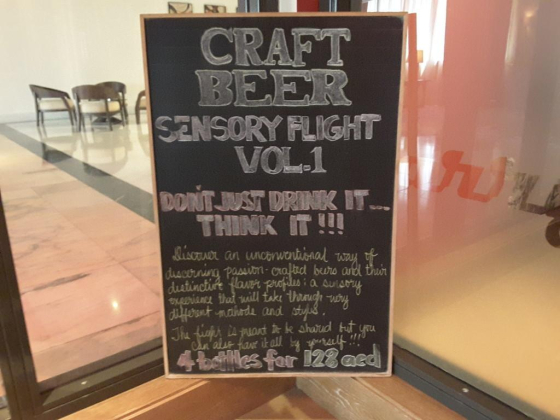 CRAFT
BEER
SENSORY FLIGHT
VOL.1
DON'T JUST DRINK IT...
THINK IT !!!
Discover an unconventional way of
discerning passion-crafted beers and their
distinctive flavor profiles: a sensory
experience that will take through very
different methods and styles.
The flight is meant to be shared but you
can also have it all by yourself!!!
4 bottles for 128 aed